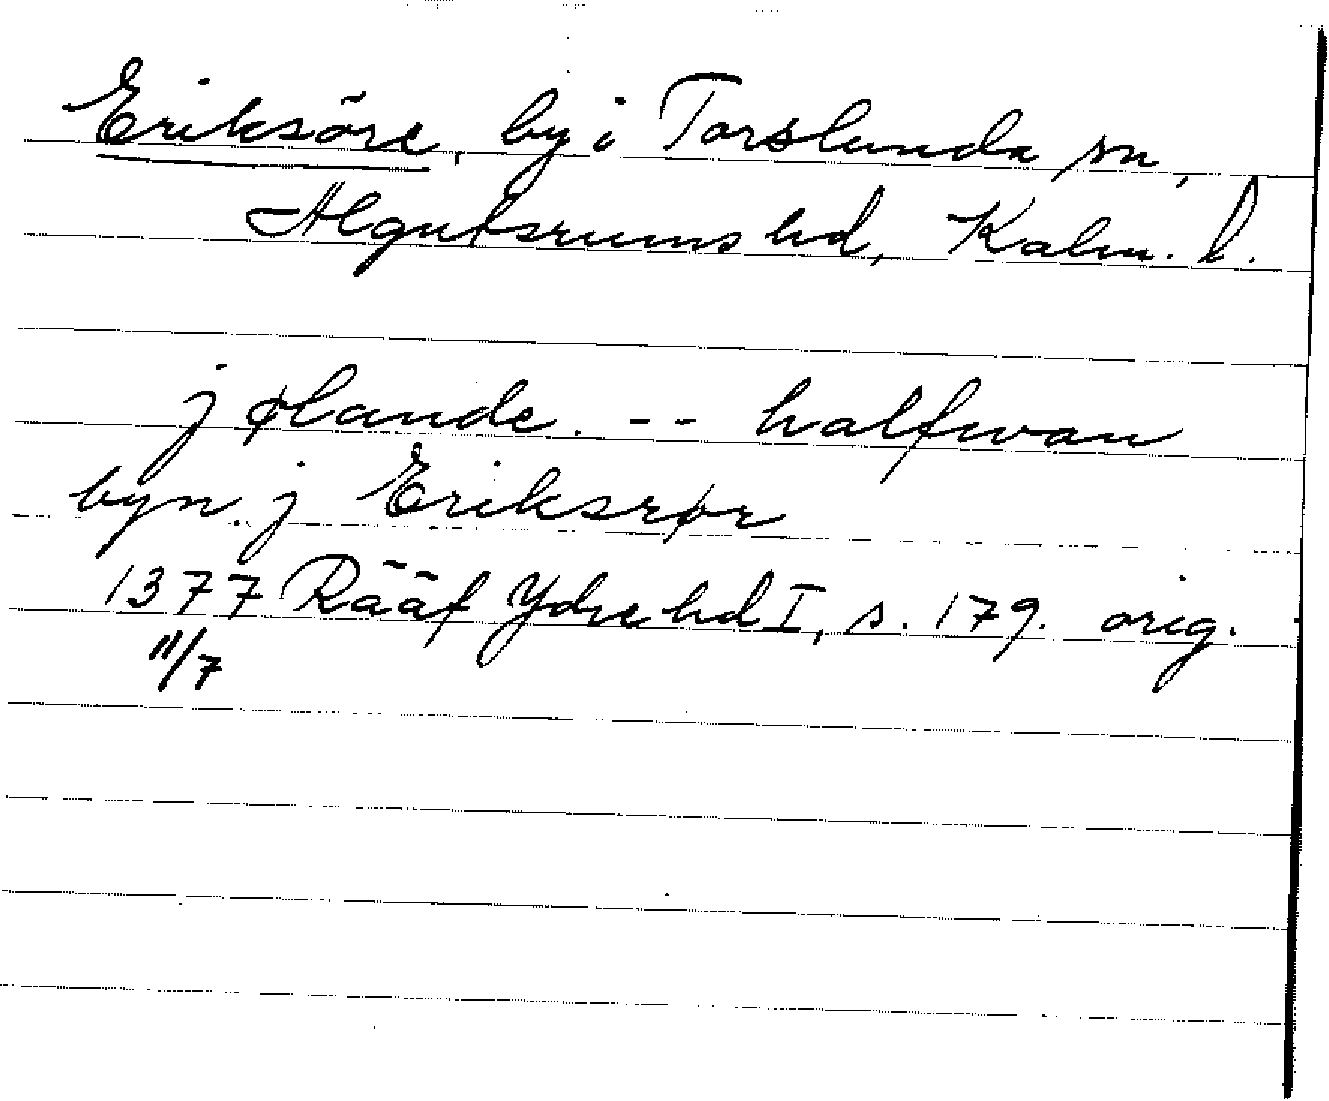 Eriksöre, by i Torslunda sn,
Algutsrums hd, Kalm. l.
j ølande. -- halfwan
byn. j Eriksrør
1377 Rääf Ydre hd I, s. 179. orig.
11/7